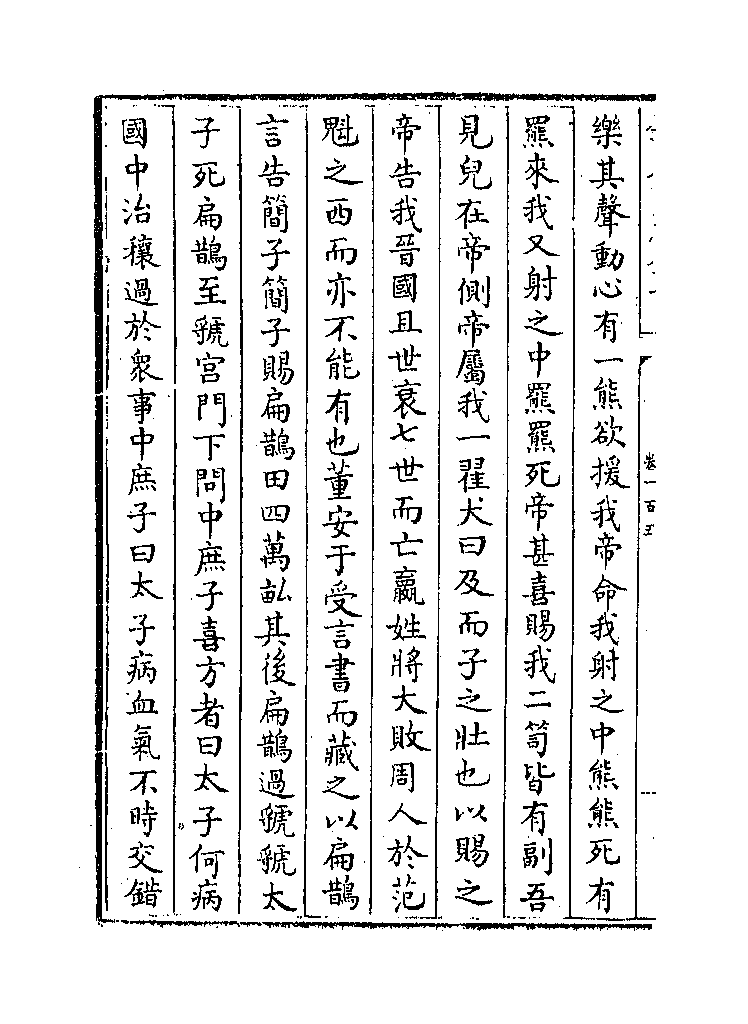 樂其聲動心有一熊欲援我帝命我射之中熊熊死有
羆來我又射之中羆羆死帝甚喜賜我二笥皆有副吾
見兒在帝側帝屬我一翟犬曰及而子之壯也以賜之
帝告我晉國且世衰七世而亡嬴姓將大敗周人於范
魁之西而亦不能有也董安于受言書而藏之以扁鵲
言告簡子簡子賜扁鵲田四萬畝其後扁鵲過虢虢太
子死扁鵲至虢宮門下問中庶子喜方者曰太子何病
國中治穰過於衆事中庶子曰太子病血氣不時交錯
卷一百五